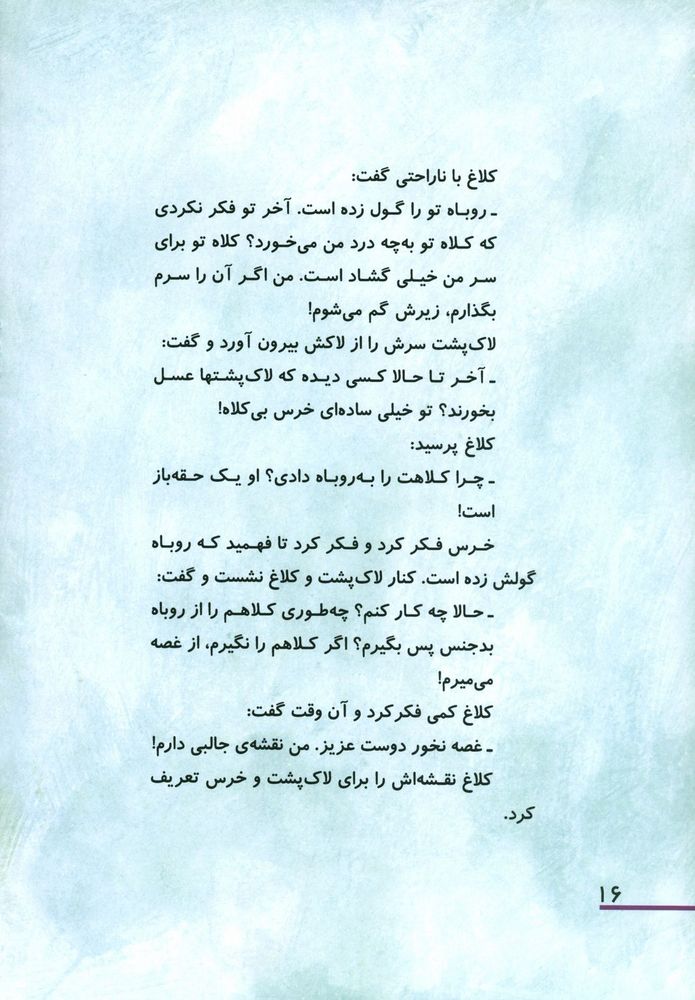 کلاغ با ناراحتی گفت:
ـ روباه تو را گول زده است. آخر تو فکر نکردی
که کلاه تو به‌چه درد من می‌خورد؟ کلاه تو برای
سر من خیلی گشاد است. من اگر آن را سرم
بگذارم، زیرش گم می‌شوم!
لاک‌پشت سرش را از لاکش بیرون آورد و گفت:
ـ آخر تا حالا کسی دیده که لاک‌پشتها عسل
بخورند؟ تو خیلی ساده‌ای خرس بی‌کلاه!
کلاغ پرسید:
ـ چرا کلاهت را به‌روباه دادی؟ او یک حقه‌باز
است!
خرس فکر کرد و فکر کرد تا فهمید که روباه
گولش زده است. کنار لاک‌پشت و کلاغ نشست و گفت:
ـ حالا چه کار کنم؟ چه‌طوری کلاهم را از روباه
بدجنس پس بگیرم؟ اگر کلاهم را نگیرم، از غصه
می‌میرم!
کلاغ کمی فکرکرد و آن وقت گفت:
ـ غصه نخور دوست عزیز. من نقشه‌ی جالبی دارم!
کلاغ نقشه‌اش را برای لاک‌پشت و خرس تعریف
کرد.
۱۶